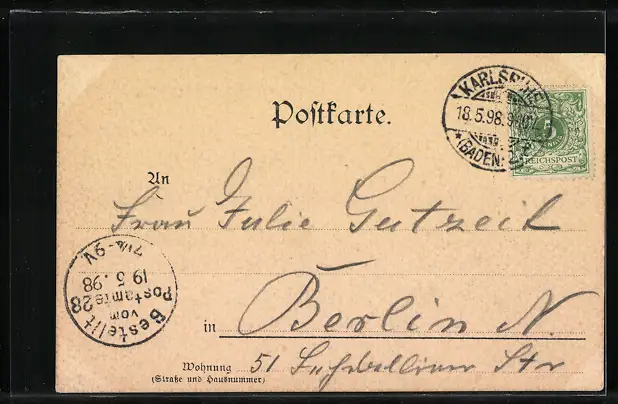 Postkarte.
KARLSRUHE
18.5.98.
(BADEN)
5
REICHSPOST
An
Frau Julie Gutzeit
Bestellt
vom
Postamte 28
19 5. 98
7¼-9V.
in Berlin N.
Wohnung 51 Str
(Straße und Hausnummer)